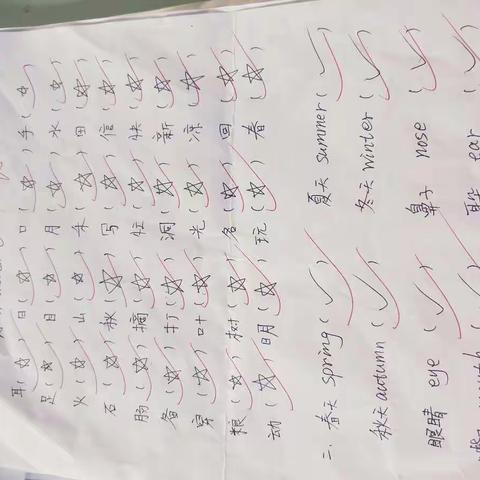 耳(☆)日(☆)口(☆)手(☆)
足(☆)目(☆)月(☆)水(☆)
火(☆)山(☆)禾(☆)田(☆)
石(☆)秋(☆)写(☆)信(☆)
肠(☆)摘(☆)壮(☆)快(☆)
备(☆)打(☆)洞(☆)新(☆)
穿(☆)叶(☆)光(☆)凉(☆)
粮(☆)树(☆)名(☆)回(☆)
动(☆)明(☆)玩(☆)春(☆)
二、春天 spring(✓) 夏天 summer(✓)
秋天 autumn(✓) 冬天 winter(✓)
眼睛 eye(✓) 鼻子 nose(✓)
ear(✓)